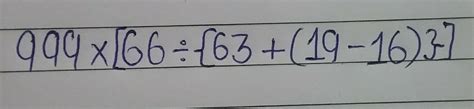 999×[66÷{63+(19-16)}]